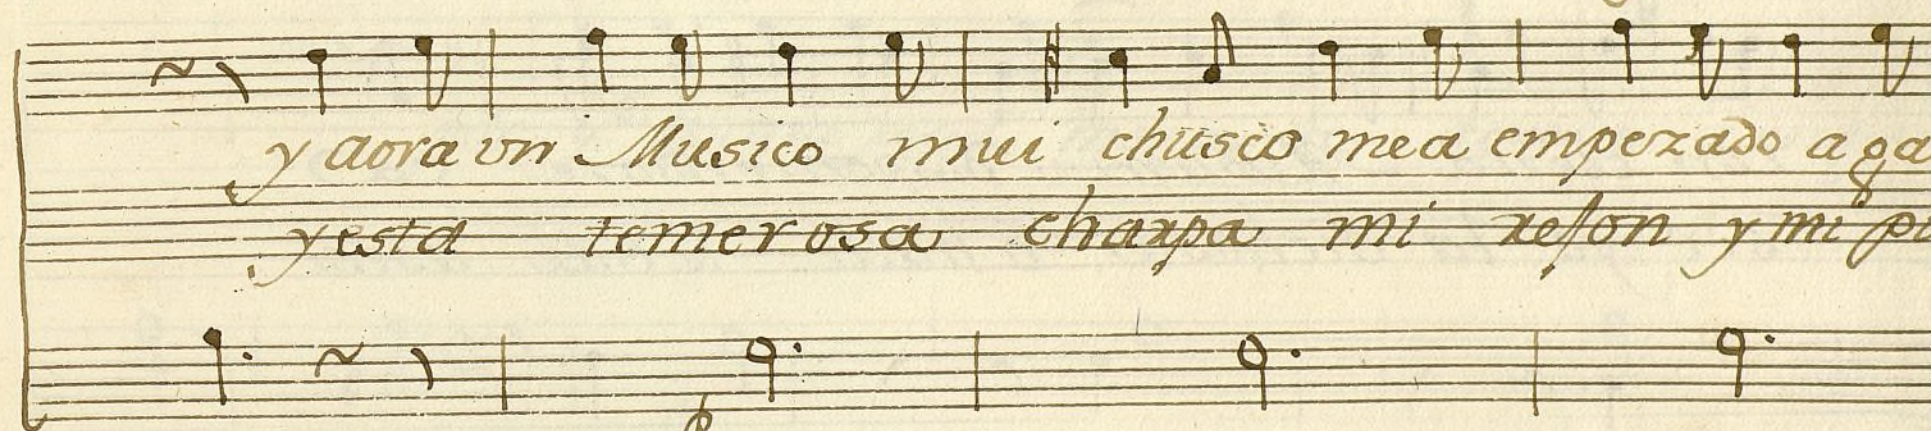 y aora vn Musico mui chusco mea empezado a ga
y esta temerosa charpa mi reson y mi pi